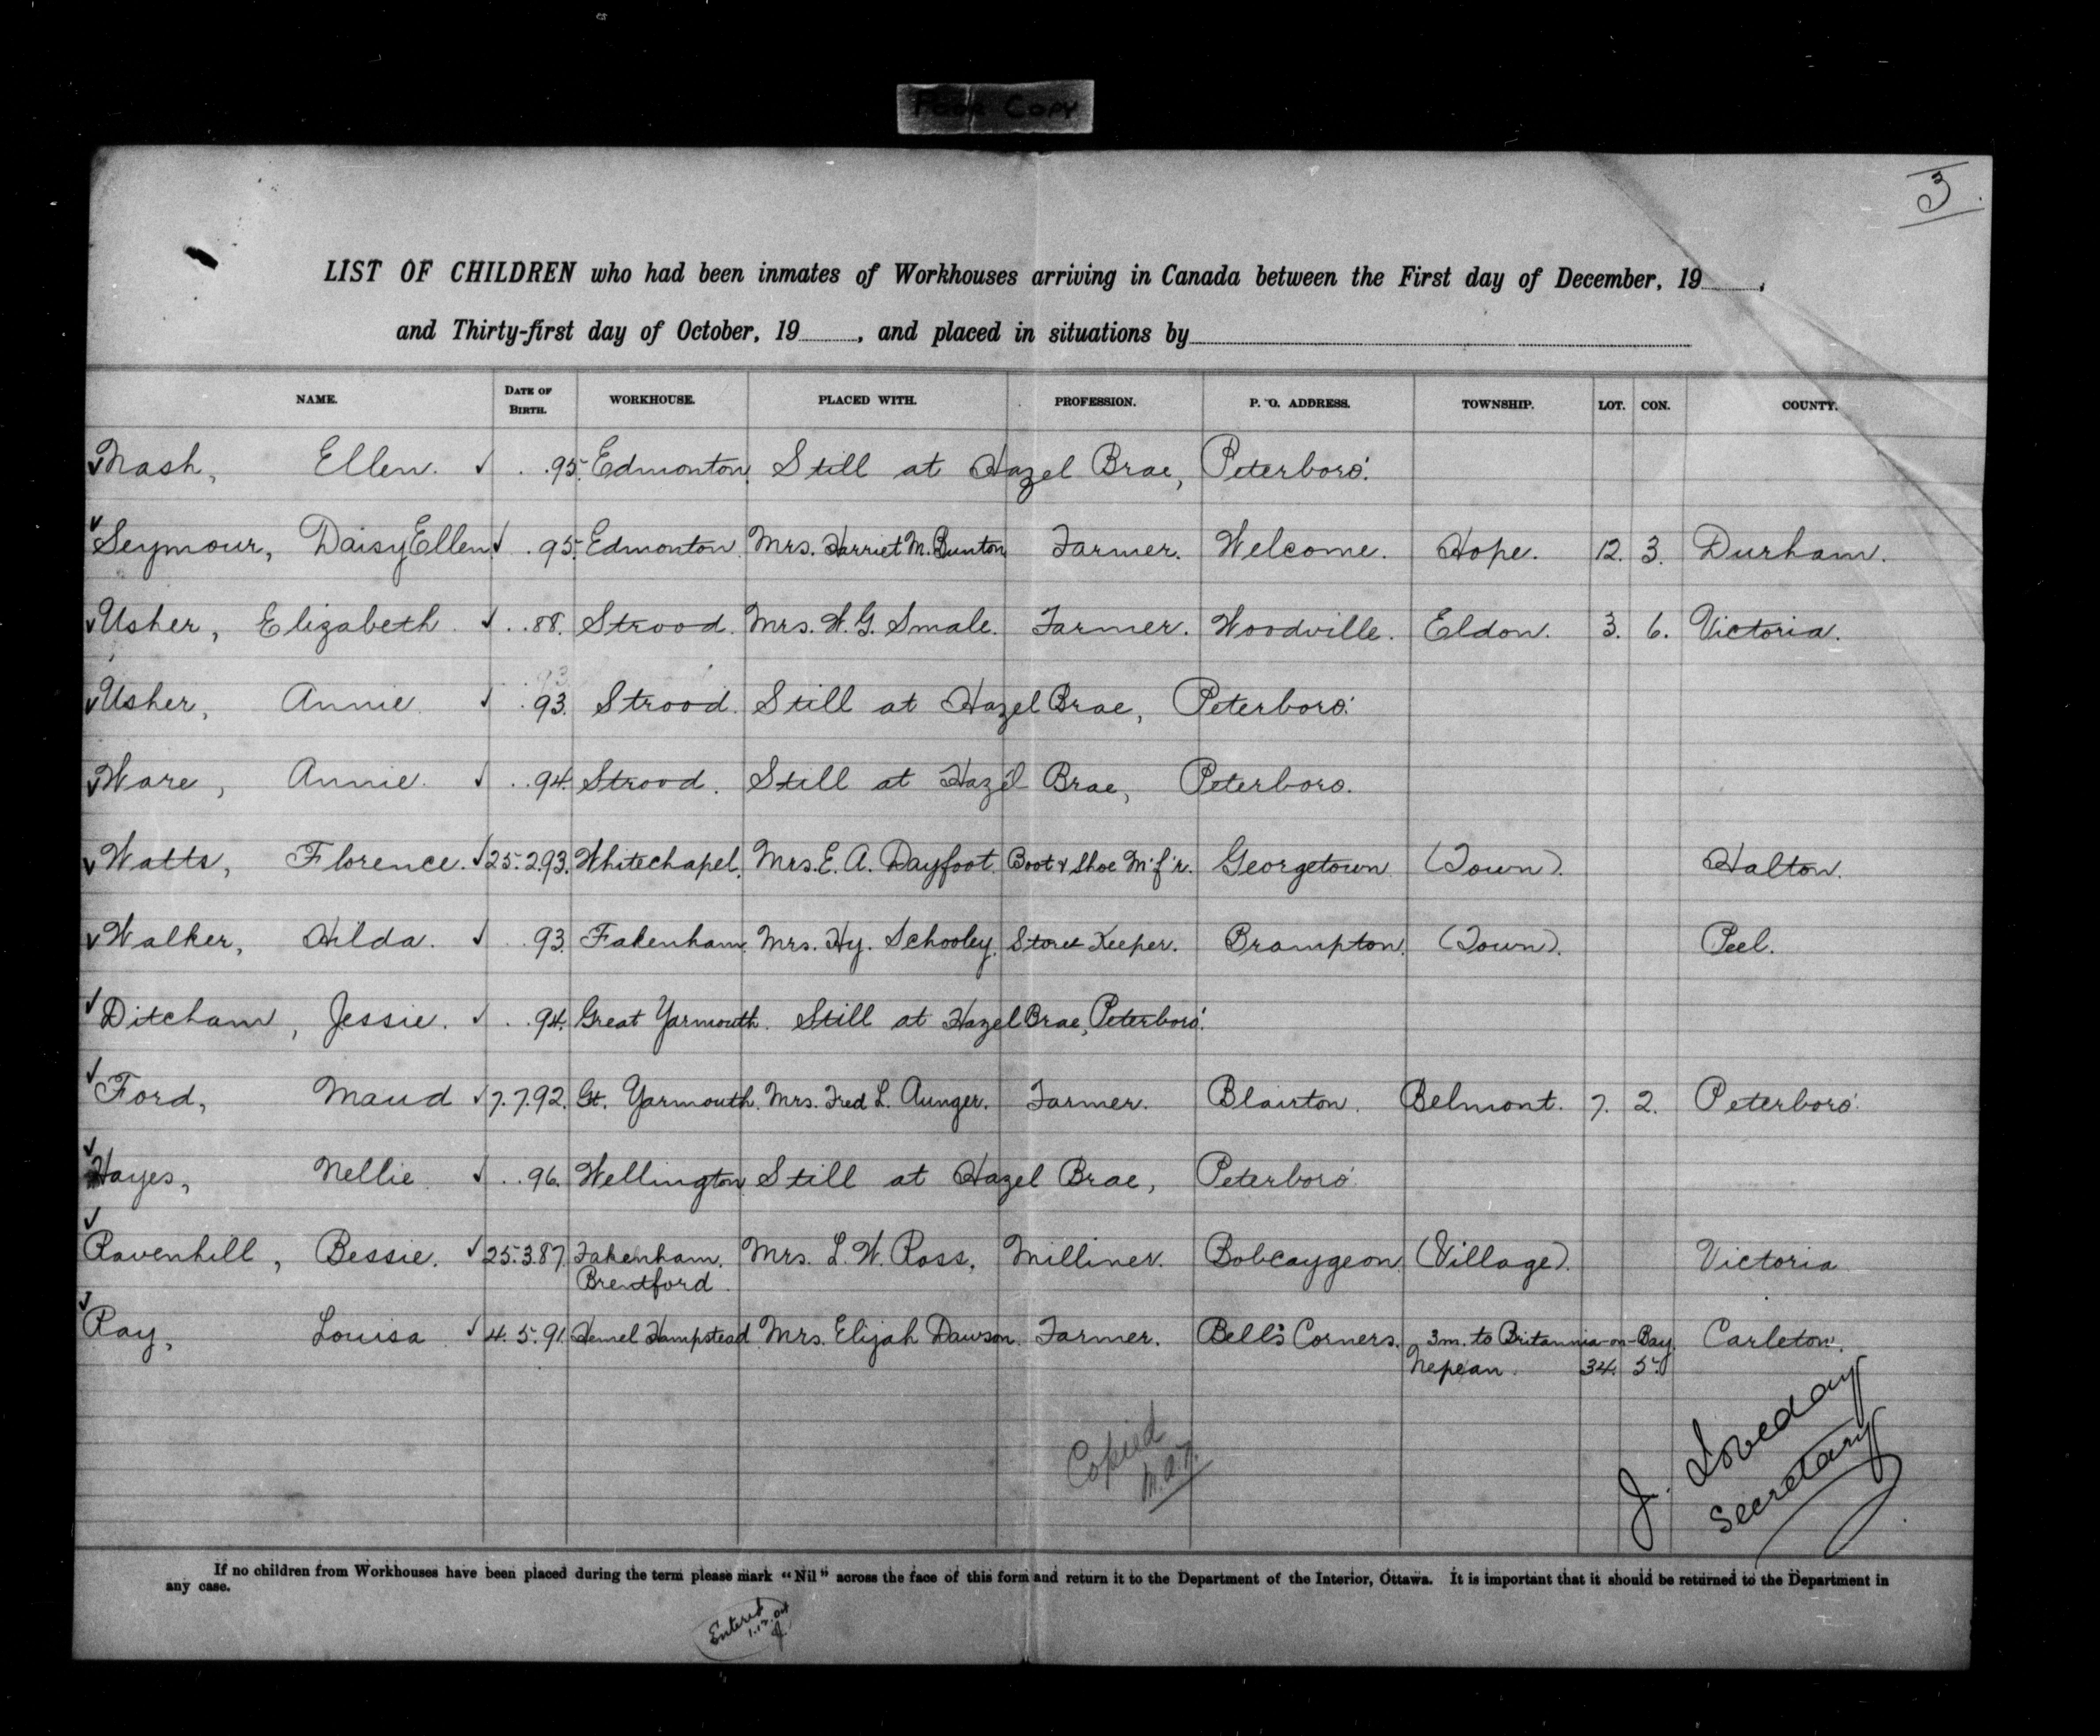 Poor Copy
3.
LIST OF CHILDREN who had been inmates of Workhouses arriving in Canada between the First day of December, 19......,
and Thirty-first day of October, 19......, and placed in situations by
NAME. DATE OF BIRTH. WORKHOUSE. PLACED WITH. PROFESSION. P. O. ADDRESS. TOWNSHIP. LOT. CON. COUNTY.
Nash, Ellen. . .95. Edmonton. Still at Hazel Brae, Peterboro'.
Seymour, Daisy Ellen . .95. Edmonton. Mrs. Harriet M. Bunton Farmer. Welcome. Hope. 12. 3. Durham.
Usher, Elizabeth . . .88. Strood. Mrs. W. G. Smale. Farmer. Woodville. Eldon. 3. 6. Victoria.
Usher, Annie. . .93. Strood. Still at Hazel Brae, Peterboro'.
Ware, Annie. . .94. Strood. Still at Hazel Brae, Peterboro.
Watts, Florence. 25.2.93. Whitechapel. Mrs. E. A. Dayfoot. Boot & Shoe M'f'r. Georgetown (Town). Halton.
Walker, Hilda. . .93. Fakenham. Mrs. Hy. Schooley. Store Keeper. Brampton. (Town). Peel.
Ditcham, Jessie. . .94. Great Yarmouth. Still at Hazel Brae, Peterboro'.
Ford, Maud 7.7.92. Gt. Yarmouth. Mrs. Fred L. Aunger. Farmer. Blairton. Belmont. 7. 2. Peterboro'.
Hayes, Nellie . .96. Wellington Still at Hazel Brae, Peterboro'
Ravenhill, Bessie. 25.3.87. Fakenham. Mrs. L. W. Ross, Milliner. Bobcaygeon. (Village). Victoria
Brentford.
Ray, Louisa 4.5.91. Hemel Hampstead Mrs. Elijah Dawson. Farmer. Bell's Corners. 3m. to Britannia-on-Bay. Carleton.
Nepean. 34. 5.
Copied
J. Loveday
Secretary
If no children from Workhouses have been placed during the term please mark "Nil" across the face of this form and return it to the Department of the Interior, Ottawa. It is important that it should be returned to the Department in
any case.
Entered